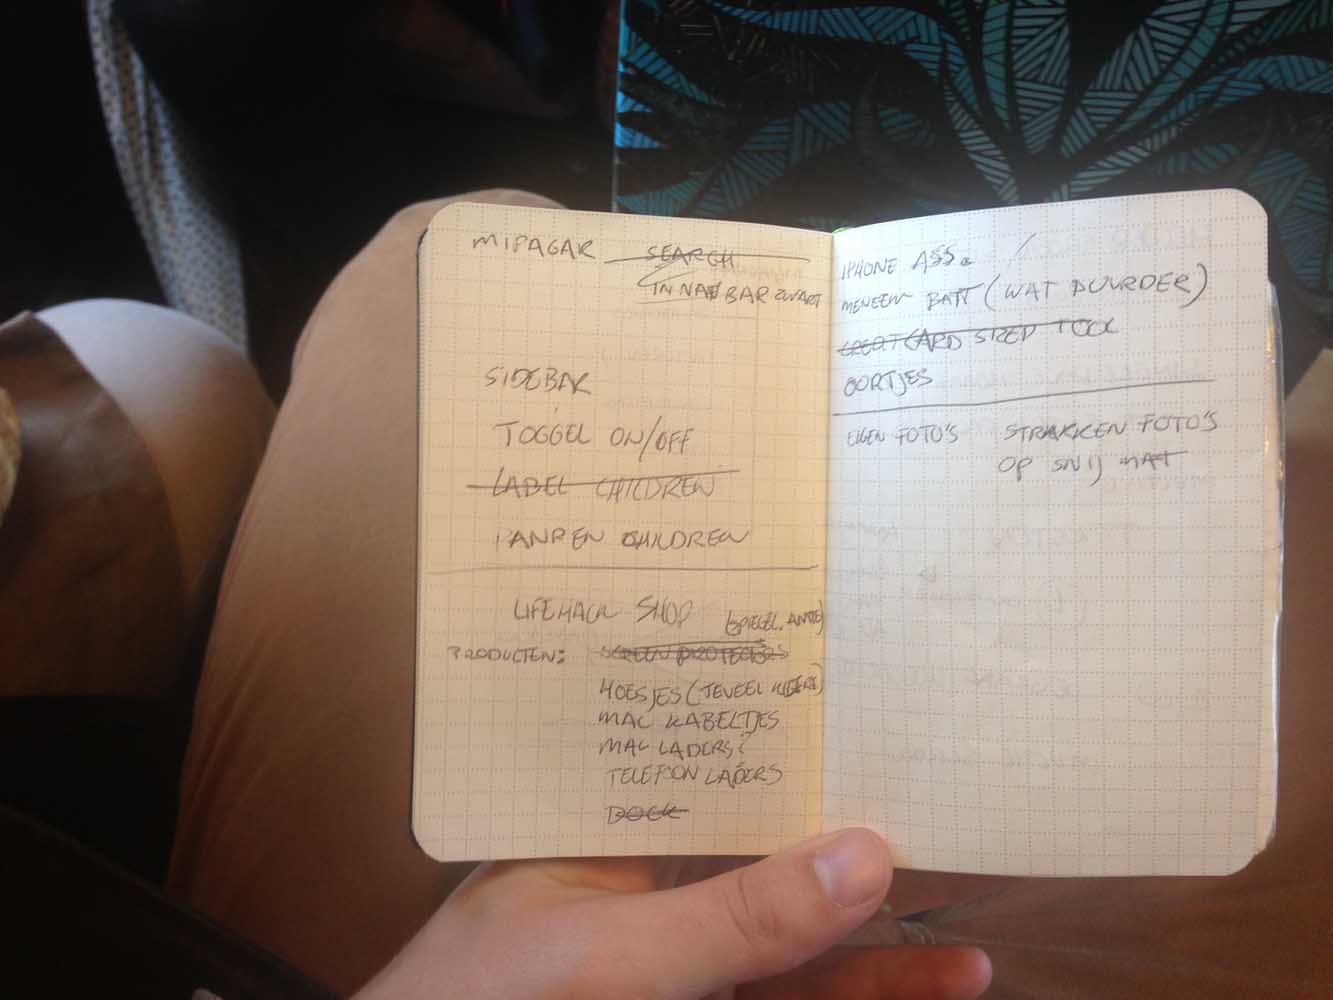 MIPAGAR SEARCH
IN NAV BAR ZWART
SIDEBAR
TOGGEL ON/OFF
LABEL CHILDREN
CHILDREN
LIFEHACK SHOP
PRODUCTEN: SCREEN PROTECTERS
HOESJES (TEVEEL
MAC KABELTJES
MAC LADERS?
TELEFOON LADERS
DOCK
IPHONE ASS.
BATT (WAT DUURDER)
CREDITCARD SIZED TOOL
OORTJES
EIGEN FOTO'S STRAKKEN FOTO'S
OP SNIJ MAT